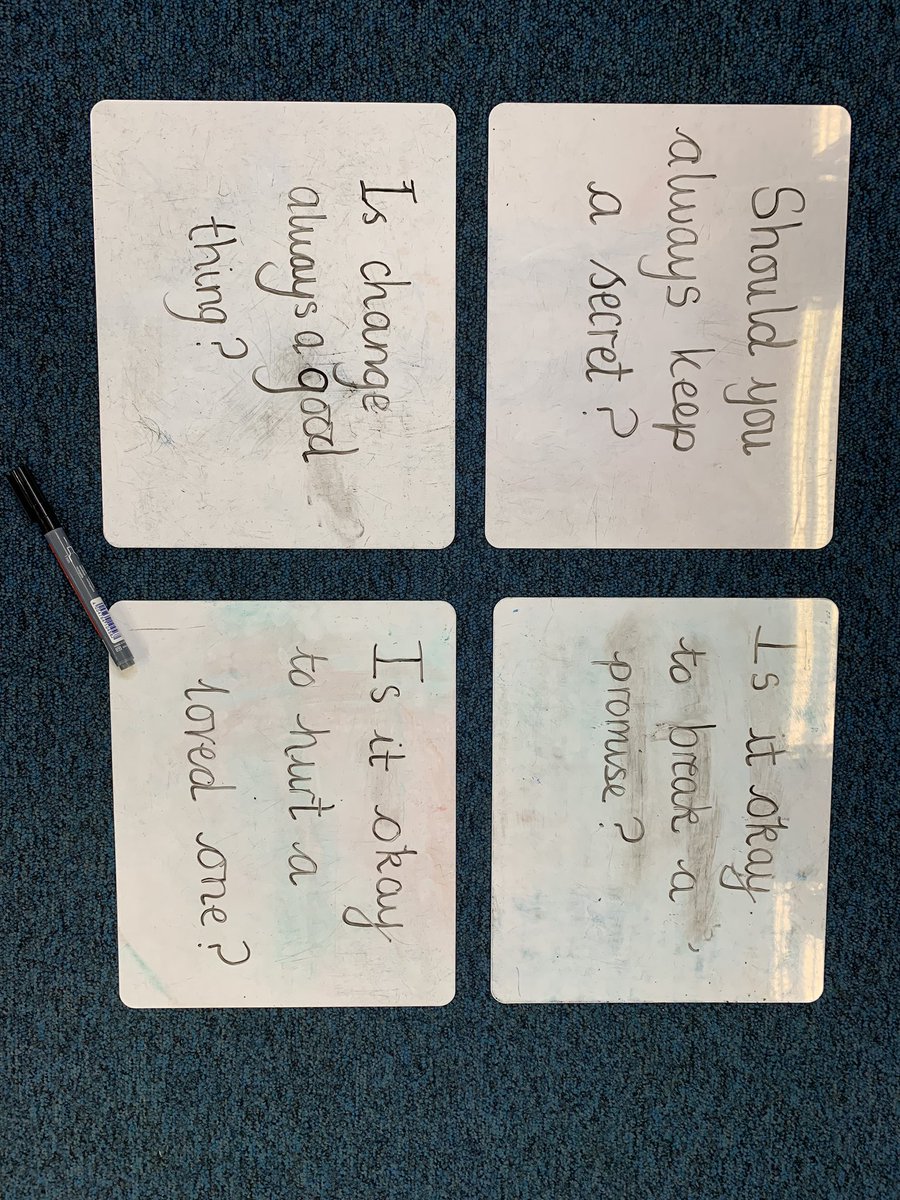 Should you
always keep
a secret?
Is it okay
to break a
promise?
Is change
always a good
thing?
Is it okay
to hurt a
loved one?